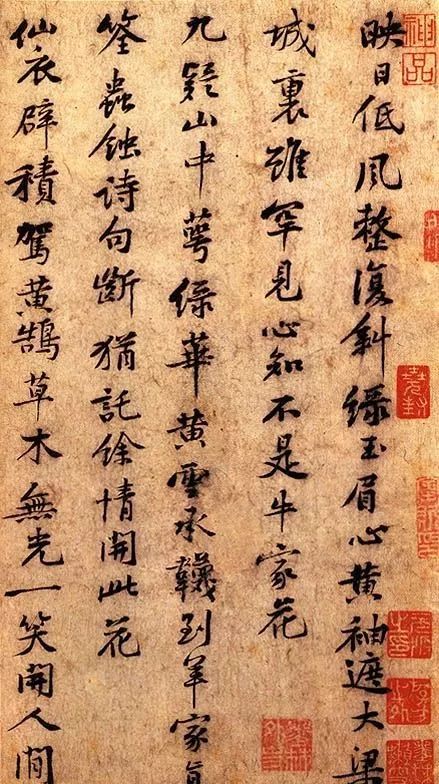 神品
映日低風整復斜綠玉眉心黃袖遮大梁
城裏雖罕見心知不是牛家花
九疑山中萼綠華黃雲承韈到羊家真
筌蟲蝕詩句斷猶託餘情開此花
仙衣襞積駕黃鵠草木無光一笑開人間